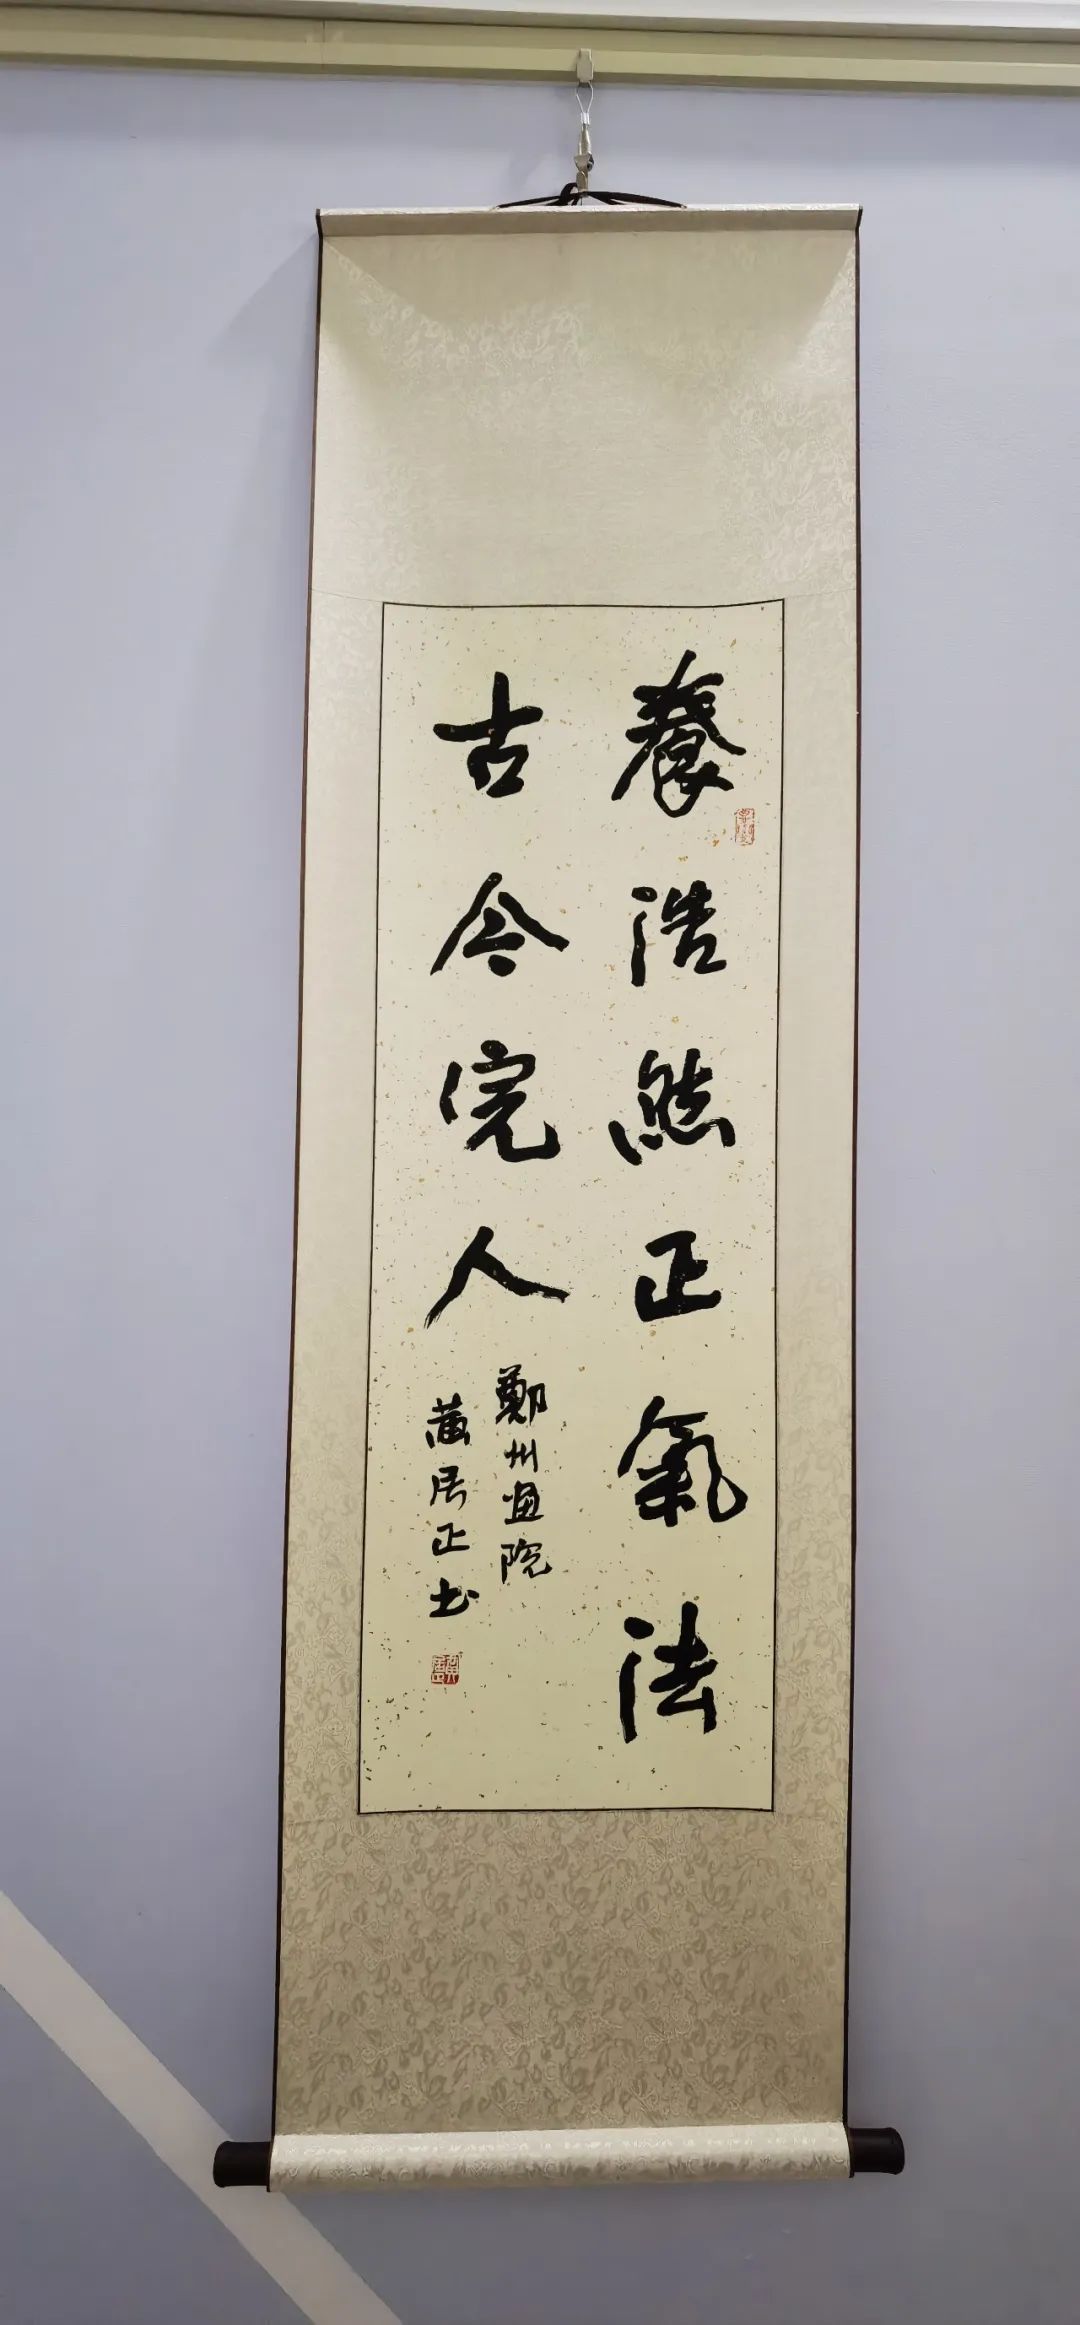 養浩然正氣法
古今完人
鄭州畫院
黃居正书